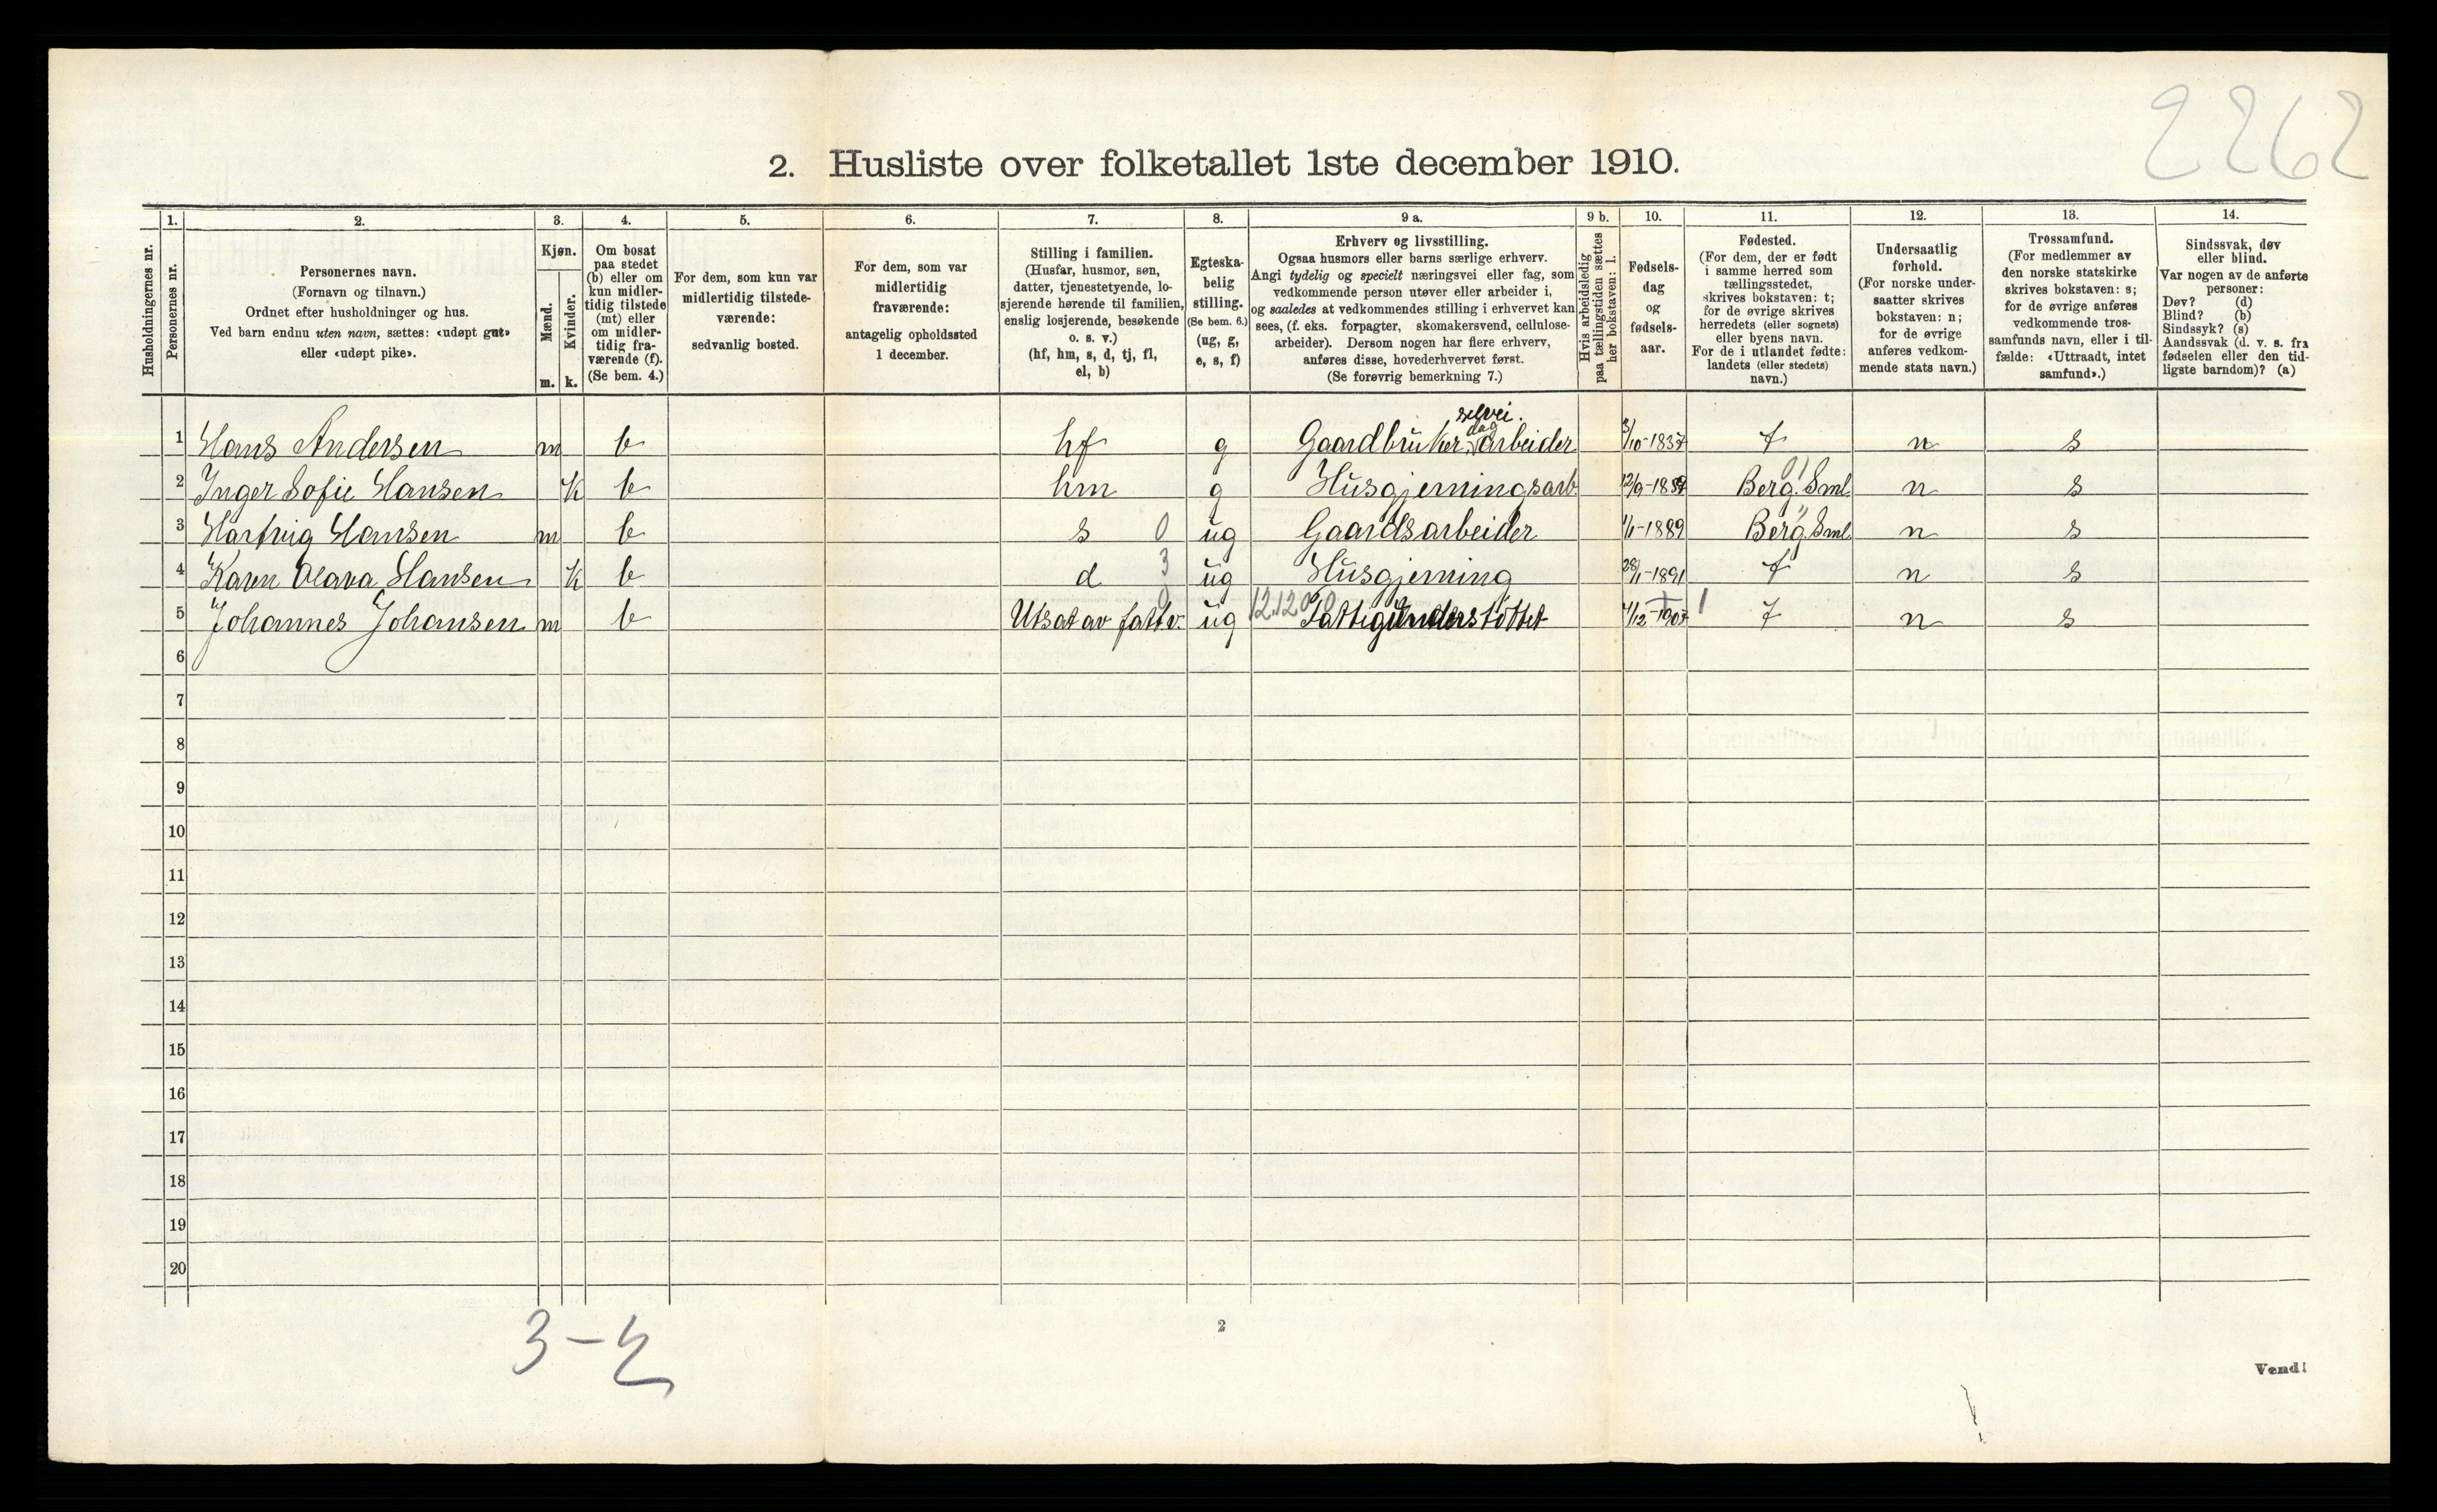 2262
2. Husliste over folketallet 1ste december 1910.
Husholdningernes nr.
1.
Personernes nr.
2.
Personernes navn.
(Fornavn og tilnavn.)
Ordnet efter husholdninger og hus.
Ved barn endnu uten navn, sættes: «udøpt gut»
eller «udøpt pike».
3.
Kjøn.
Mænd.
Kvinder.
m. k.
4.
Om bosat
paa stedet
(b) eller om
kun midler-
tidig tilstede
(mt) eller
om midler-
tidig fra-
værende (f).
(Se bem. 4.)
5.
For dem, som kun var
midlertidig tilstede-
værende:
sedvanlig bosted.
6.
For dem, som var
midlertidig
fraværende:
antagelig opholdssted
1 december.
7.
Stilling i familien.
(Husfar, husmor, søn,
datter, tjenestetyende, lo-
sjerende hørende til familien,
enslig losjerende, besøkende
o. s. v.)
(hf, hm, s, d, tj, fl,
el, b)
8.
Egteska-
belig
stilling.
(Se bem. 6.)
(ug, g,
e, s, f)
9 a.
Erhverv og livsstilling.
Ogsaa husmors eller barns særlige erhverv.
Angi tydelig og specielt næringsvei eller fag, som
vedkommende person utøver eller arbeider i,
og saaledes at vedkommendes stilling i erhvervet kan
sees, (f. eks. forpagter, skomakersvend, cellulose-
arbeider). Dersom nogen har flere erhverv,
anføres disse, hovederhvervet først.
(Se forøvrig bemerkning 7.)
9 b.
Hvis arbeidsledig
paa tællingstiden sættes
her bokstaven: l.
10.
Fødsels-
dag
og
fødsels-
aar.
11.
Fødested.
(For dem, der er født
i samme herred som
tællingsstedet,
skrives bokstaven: t;
for de øvrige skrives
herredets (eller sognets)
eller byens navn.
For de i utlandet fødte:
landets (eller stedets)
navn.)
12.
Undersaatlig
forhold.
(For norske under-
saatter skrives
bokstaven: n;
for de øvrige
anføres vedkom-
mende stats navn.)
13.
Trossamfund.
(For medlemmer av
den norske statskirke
skrives bokstaven: s;
for de øvrige anføres
vedkommende tros-
samfunds navn, eller i til-
fælde: «Uttraadt, intet
samfund».)
14.
Sindssvak, døv
eller blind.
Var nogen av de anførte
personer:
Døv? (d)
Blind? (b)
Sindssyk? (s)
Aandssvak (d. v. s. fra
fødselen eller den tid-
ligste barndom)? (a)
selvei.
dag
1 Hans Andersen m b hf g Gaardbruker, arbeider 3/10-1837 t n s
2 Inger Sofie Hansen k b hm g Husgjerningsarb. Berg. Sml. n s
3 Hartvig Hansen m b s 0 ug Gaardsarbeider 1/1-1889 Berg. Sml. n s
4 Karen Olava Hansen k b d 3 ug Husgjerning 28/1-1891 t n s
5 Johannes Johansen m b Utsat av fattv. ug Fattigunderstöttet t n s
6
7
8
9
10
11
12
13
14
15
16
17
18
19
20
3-2
2
Vend!